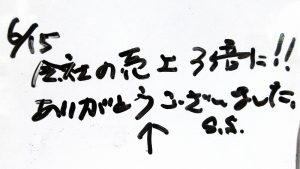 6/15
会社の売上3倍に!!
ありがとうございました。
S.S.